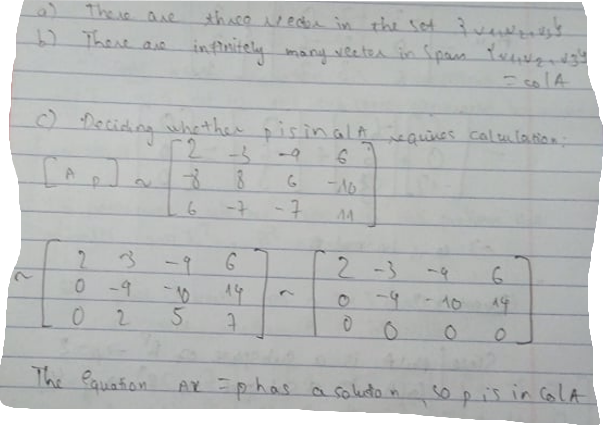 a) There are three vector in the set {v1, v2, v3}
b) There are infinitely many vector in span {v1, v2, v3}
= colA
c) Deciding whether p is in col A requires calculation:
[A p] ~ [2 -3 -4 6
-8 8 6 -10
6 -7 -7 11]
~ [2 -3 -4 6
0 -4 -10 14
0 2 5 7] ~ [2 -3 -4 6
0 -4 -10 14
0 0 0 0]
The equation AX = p has a soluton, so p is in ColA